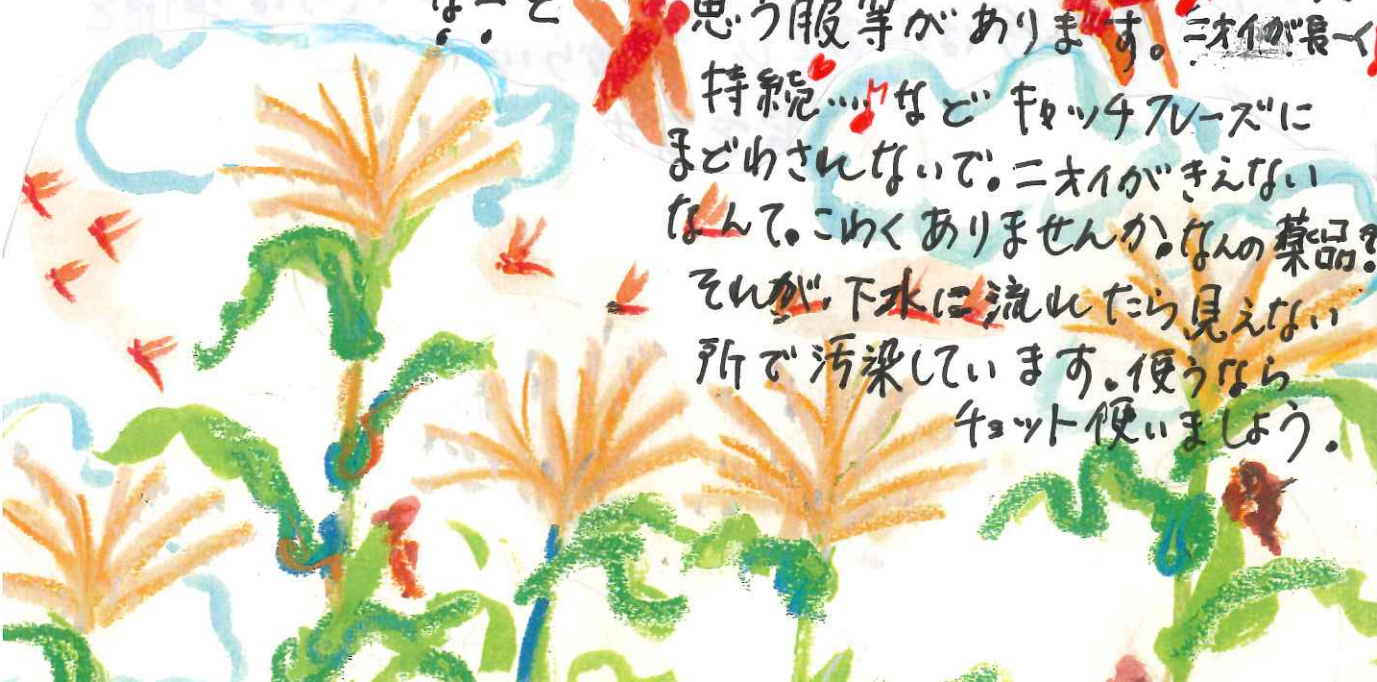 なーと
思う服等があります。ニオイが長〜く
持続……♪など キャッチフレーズに
まどわされないで。ニオイがきえない
なんて。こわくありませんか。なんの薬品?
それが、下水に流れたら見えない
所で汚染しています。使うなら
チョット使いましょう。